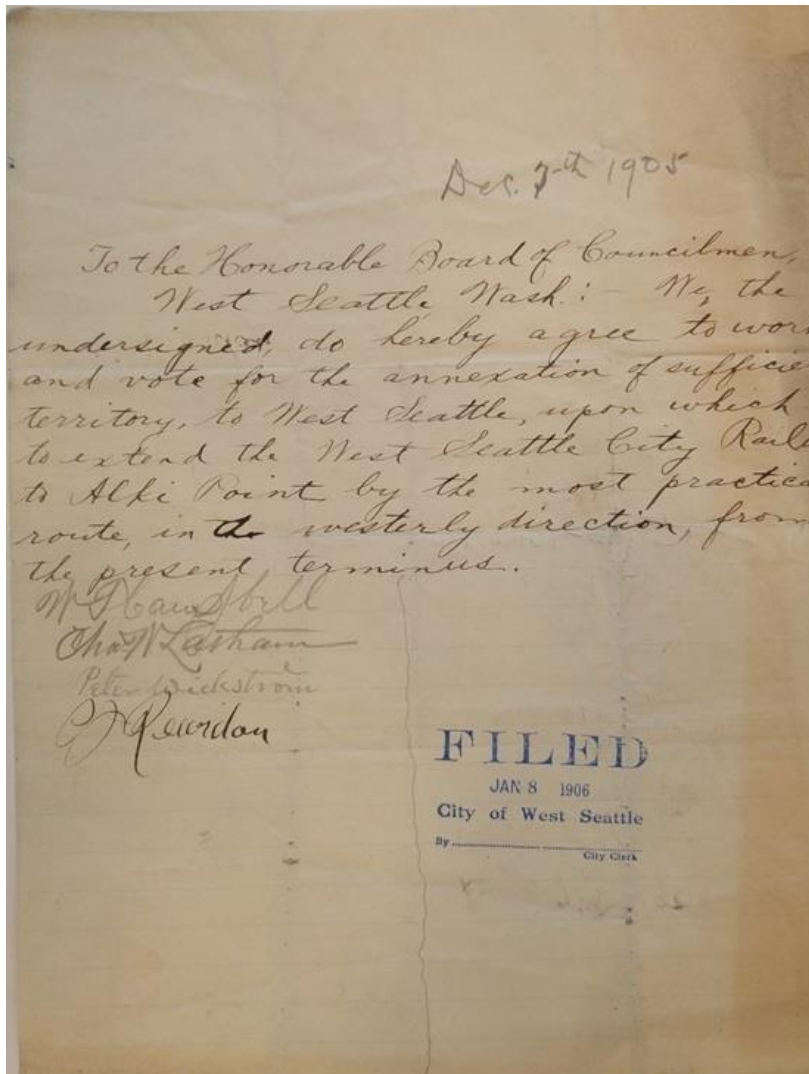 Dec. 7th 1905
To the Honorable Board of Councilmen,
West Seattle Wash.: – We, the
undersigned, do hereby agree to wor
and vote for the annexation of sufficie
territory, to West Seattle, upon which
to extend the West Seattle City Rail
to Alki Point by the most practica
route, in the westerly direction, from
the present terminus.
Campbell
Chas W Latham
Peter Wickstrom
Rewidon
FILED
JAN 8 1906
City of West Seattle
By
City Clerk